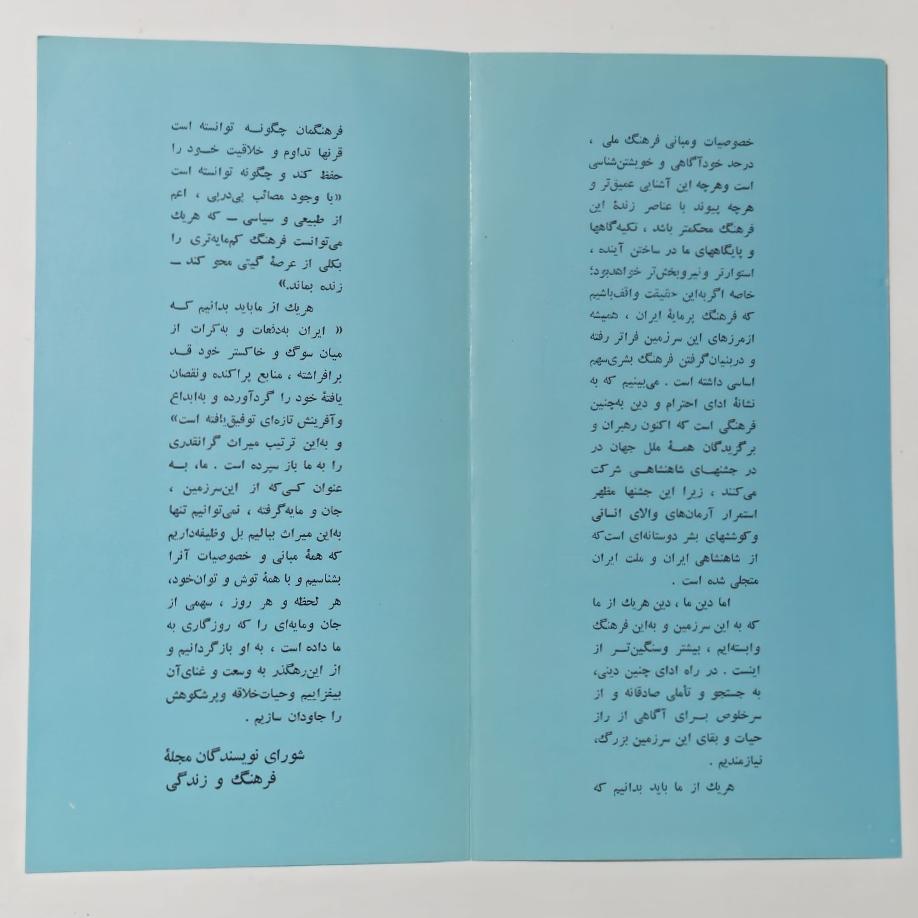 خصوصیات ومبانی فرهنگ ملی ،
درحد خودآگاهی و خویشتن‌شناسی
است وهرچه این آشنایی عمیق‌تر و
هرچه پیوند با عناصر زندهٔ این
فرهنگ محکمتر باشد ، تکیه‌گاهها
و پایگاههای ما در ساختن آینده ،
استوارتر ونیروبخش‌تر خواهدبود؛
خاصه اگربه‌این حقیقت واقف‌باشیم
که فرهنگ پرمایهٔ ایران ، همیشه
ازمرزهای این سرزمین فراتر رفته
و دربنیان‌گرفتن فرهنگ بشری‌سهم
اساسی داشته است . می‌بینیم که به
نشانهٔ ادای احترام و دین به‌چنین
فرهنگی است که اکنون رهبران و
برگزیدگان همـهٔ ملل جهان در
در جشنهـای شاهنشاهـی شرکت
می‌کنند ، زیرا این جشنها مظهر
استمرار آرمان‌های والای انسانی
وکوششهای بشر دوستانه‌ای است‌که
از شاهنشاهی ایران و ملت ایران
متجلی شده است .
اما دین ما ، دین هریك از ما
که به این سرزمین و به‌این فرهنگ
وابسته‌ایم ، بیشتر وسنگین‌تـر از
اینست . در راه ادای چنین دینی،
به جستجو و تأملی صادقانه و از
سرخلوص بـرای آگاهی از راز
حیات و بقای این سرزمین بزرگ،
نیازمندیم .
هریك از ما باید بدانیم که
فرهنگمان چگونـه توانسته است
قرنها تداوم و خلاقیت خـود را
حفظ کند و چگونه توانسته است
«با وجود مصائب پی‌درپی ، اعم
از طبیعی و سیاسی ــ که هریك
می‌توانست فرهنگ کم‌مایه‌تری را
بکلی از عرصهٔ گیتی محو کند ــ
زنده بماند.»
هریك از ماباید بدانیم کـه
« ایران به‌دفعات و به‌کرات از
میان سوگ و خاکستر خود قـد
برافراشته ، منابع پراکنده ونقصان
یافتهٔ خود را گردآورده و به‌ابداع
وآفرینش تازه‌ای توفیق‌یافته است»
و به‌این ترتیب میراث گرانقدری
را به ما باز سپرده است . ما، بـه
عنوان کسی‌که از این‌سرزمین ،
جان و مایه‌گرفته ، نمی‌توانیم تنها
به‌این میراث ببالیم بل وظیفه‌داریم
که همهٔ مبانی و خصوصیات آنرا
بشناسیم و با همهٔ توش و توان‌خود،
هر لحظه و هر روز ، سهمی از
جان ومایه‌ای را که روزگاری به
ما داده است ، به او بازگردانیم و
از این‌رهگذر به وسعت و غنای‌آن
بیفزاییم وحیات‌خلاقه وپرشکوهش
را جاودان سازیم .
شورای نویسندگان مجلهٔ
فرهنگ و زندگی